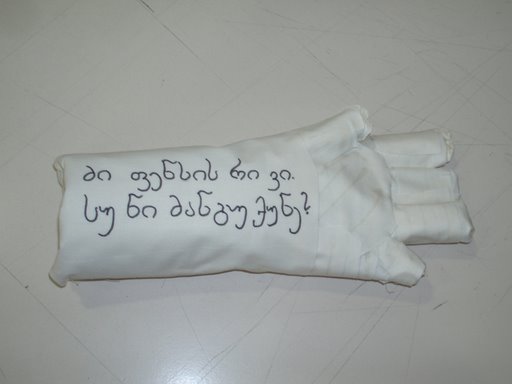 მი ფენსის რი ვი.
სუ ნი მანგუ ქუნე?